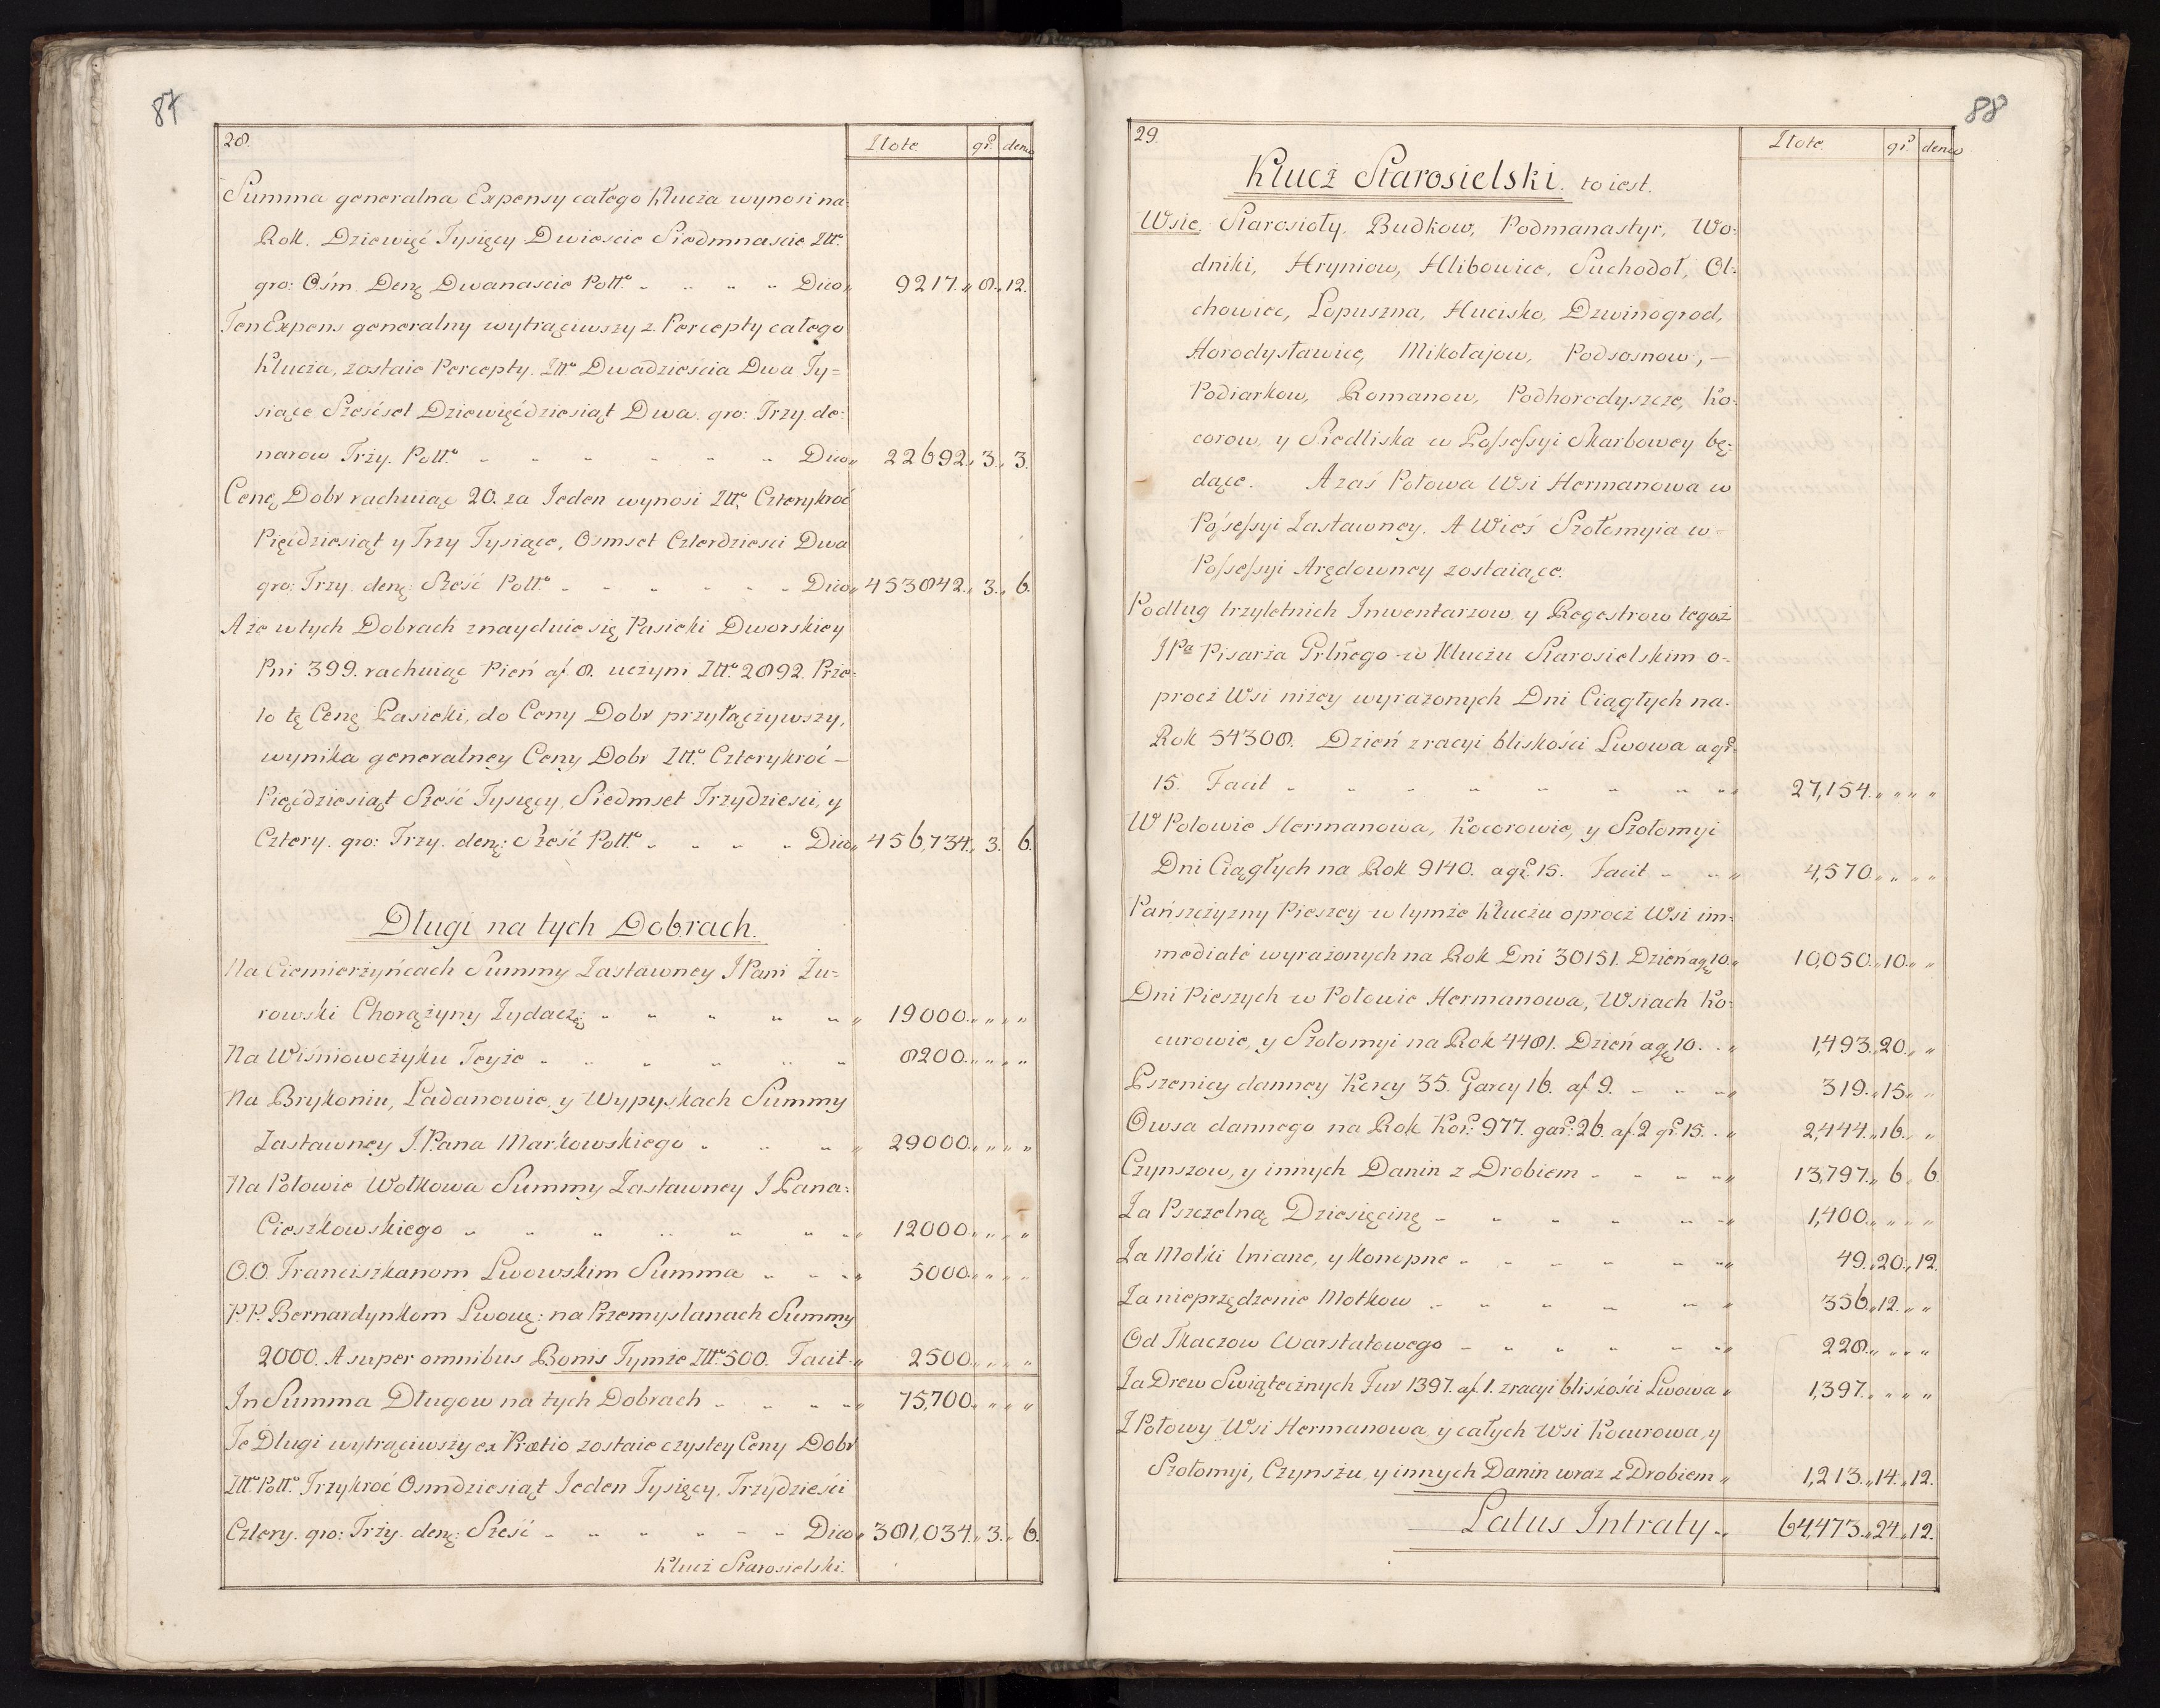 87
28. Złote. gr. denar
Summa generalna Expensy całego Klucza wynosi na
Rok. Dziewięć Tysięcy Dwiescie Siedmnascie Złt.
gro: Ośm. Denę Dwanascie Poltt. " " " " Dico " 9217. " 8 " 12.
Ten Expens generalny wytrąciwszy z Percepty całego
Klucza, zostaie Percepty. Złt. Dwadzieścia Dwa Ty=
siące Sześćset Dziewięćdziesiąt Dwa. gro: Trzy. de=
narow Trży. Poltt. " " " " " " Dico " 22692. " 3. " 3.
Cenę Dobr rachuiąc 20. za Jeden wynosi Złt. Czterykroć
Pięćdziesiąt y Trzy Tysiące, Osmset Czterdziesci Dwa
gro: Trzy. denę: Sześć Poltt. " " " " " Dico " 453842. " 3. " 6.
A że w tych Dobrach znayduie się Pasieki Dworskiey
Pni 399. rachuiąc Pień a f 8. uczyni Złt. 2892. Prze=
to tę Cenę Pasieki, do Ceny Dobr przyłączywszy,
wynika generalney Ceny Dobr Złt. Czterykroć —
Pięćdziesiąt Sześć Tysięcy, Siedmset Trzydziesci, y
Cztery. gro: Trzy. denę: Sześć Poltt. " " " " Dico " 456,734. " 3. " 6.
Długi na tych Dobrach.
Na Ciemierzyńcach Summy Zastawney J Pani Żu=
rowski Chorążyny Żydaczę " " " " " 19000. " " "
Na Wiśniowczyku Teyże " " " " " 8200. " " "
Na Brykoniu, Ładanowie, y Wypyskach Summy
Zastawney J. Pana Markowskiego " " " " 29000. " " "
Na Połowie Wołkowa Summy Zastawney J Pana=
Cieszkowskiego " " " " " " 12000. " " "
O.O. Franciszkanom Lwowskim Summa " " " 5000. " " "
P.P. Bernardynkom Lwowę: na Przemyslanach Summy
2000. A super omnibus Bonis Tymże Złt. 500. Facit " 2500. " " "
In Summa Długow na tych Dobrach " " " " 75,700. " " "
Te Długi wytrąciwszy ex Prætio zostaie czystey Ceny Dobr
Złt. Poltt. Trzykroć Osmdziesiąt Jeden Tysięcy, Trzydzieści
Cztery. gro: Trży. denę: Sześć " " " " " Dico " 381,034. " 3. " 6.
Klucz Starosielski.
88
29. Złote. gr. denar
Klucż Starosielski. to iest.
Wsie Starosioły, Budkow, Podmanastyr, Wo=
dniki, Hryniow, Hlibowice, Suchodoł, Ol=
chowiec, Łopuszna, Hucisko, Dzwinogrod,
Horodysławice, Mikołajow, Podsosnow, —
Podiarkow, Romanow, Podhorodyszcze, Ko=
corow y Siedliska w Possessyi Skarbowey bę=
dące. A zaś Połowa Wsi Hermanowa w
Possessyi Zastawney. A Wieś Szołomyia w —
Possessyi Arędowney zostaiące.
Podług trzyletnich Inwentarzow y Regestrow tegoż
J Pa Pisarża Grlnego w Kluczu Starosielskim o=
procż Wsi niżey wyrażonych Dni Ciągłych na
Rok 54308. Dzień z racyi bliskości Lwowa a gr.
15. Facit " " " " " " " 27,154. " " " "
W Połowie Hermanowa, Kocorowie, y Szołomyi
Dni Ciągłych na Rok 9140. a gr. 15. Facit " " " 4,570. " " "
Pańszczyzny Pieszey w tymże Kluczu oprocż Wsi im=
mediatè wyrażonych na Rok Dni 30151. Dzień a gr 10. " 10,050. " 10. " "
Dni Pieszych w Połowie Hermanowa, Wsiach Ko=
curowie, y Szołomyi na Rok 4481. Dzień a gr 10. " 1,493. " 20. " "
Pszenicy danney Korcy 35. Garcy 16. a f 9. " " " 319. " 15. " "
Owsa dannego na Rok Kor: 977. gar: 26. a f. 2 gr. 15. " 2,444. " 16. "
Czynszow, y innych Danin z Drobiem " " " " 13,797. " 6. " 6
Za Pszczelną Dziesięcinę " " " " " 1,400. " " "
Za Motki lniane, y Konopne " " " " " 49. " 20. " 12.
Za nieprzędzenie Motkow " " " " " 356. " 12. " "
Od Tkaczow Warstatowego " " " " " 228. " " "
Za Drew Swiątecżnych Fur 1397. a f. 1. z racyi bliskości Lwowa " 1,397. " " "
Z Połowy Wsi Hermanowa y całych Wsi Kocurowa, y
Szołomyi, Czynszu, y innych Danin wraz z Drobiem " 1,213. " 14. " 12.
Latus Intraty. " 64,473. " 24. " 12.